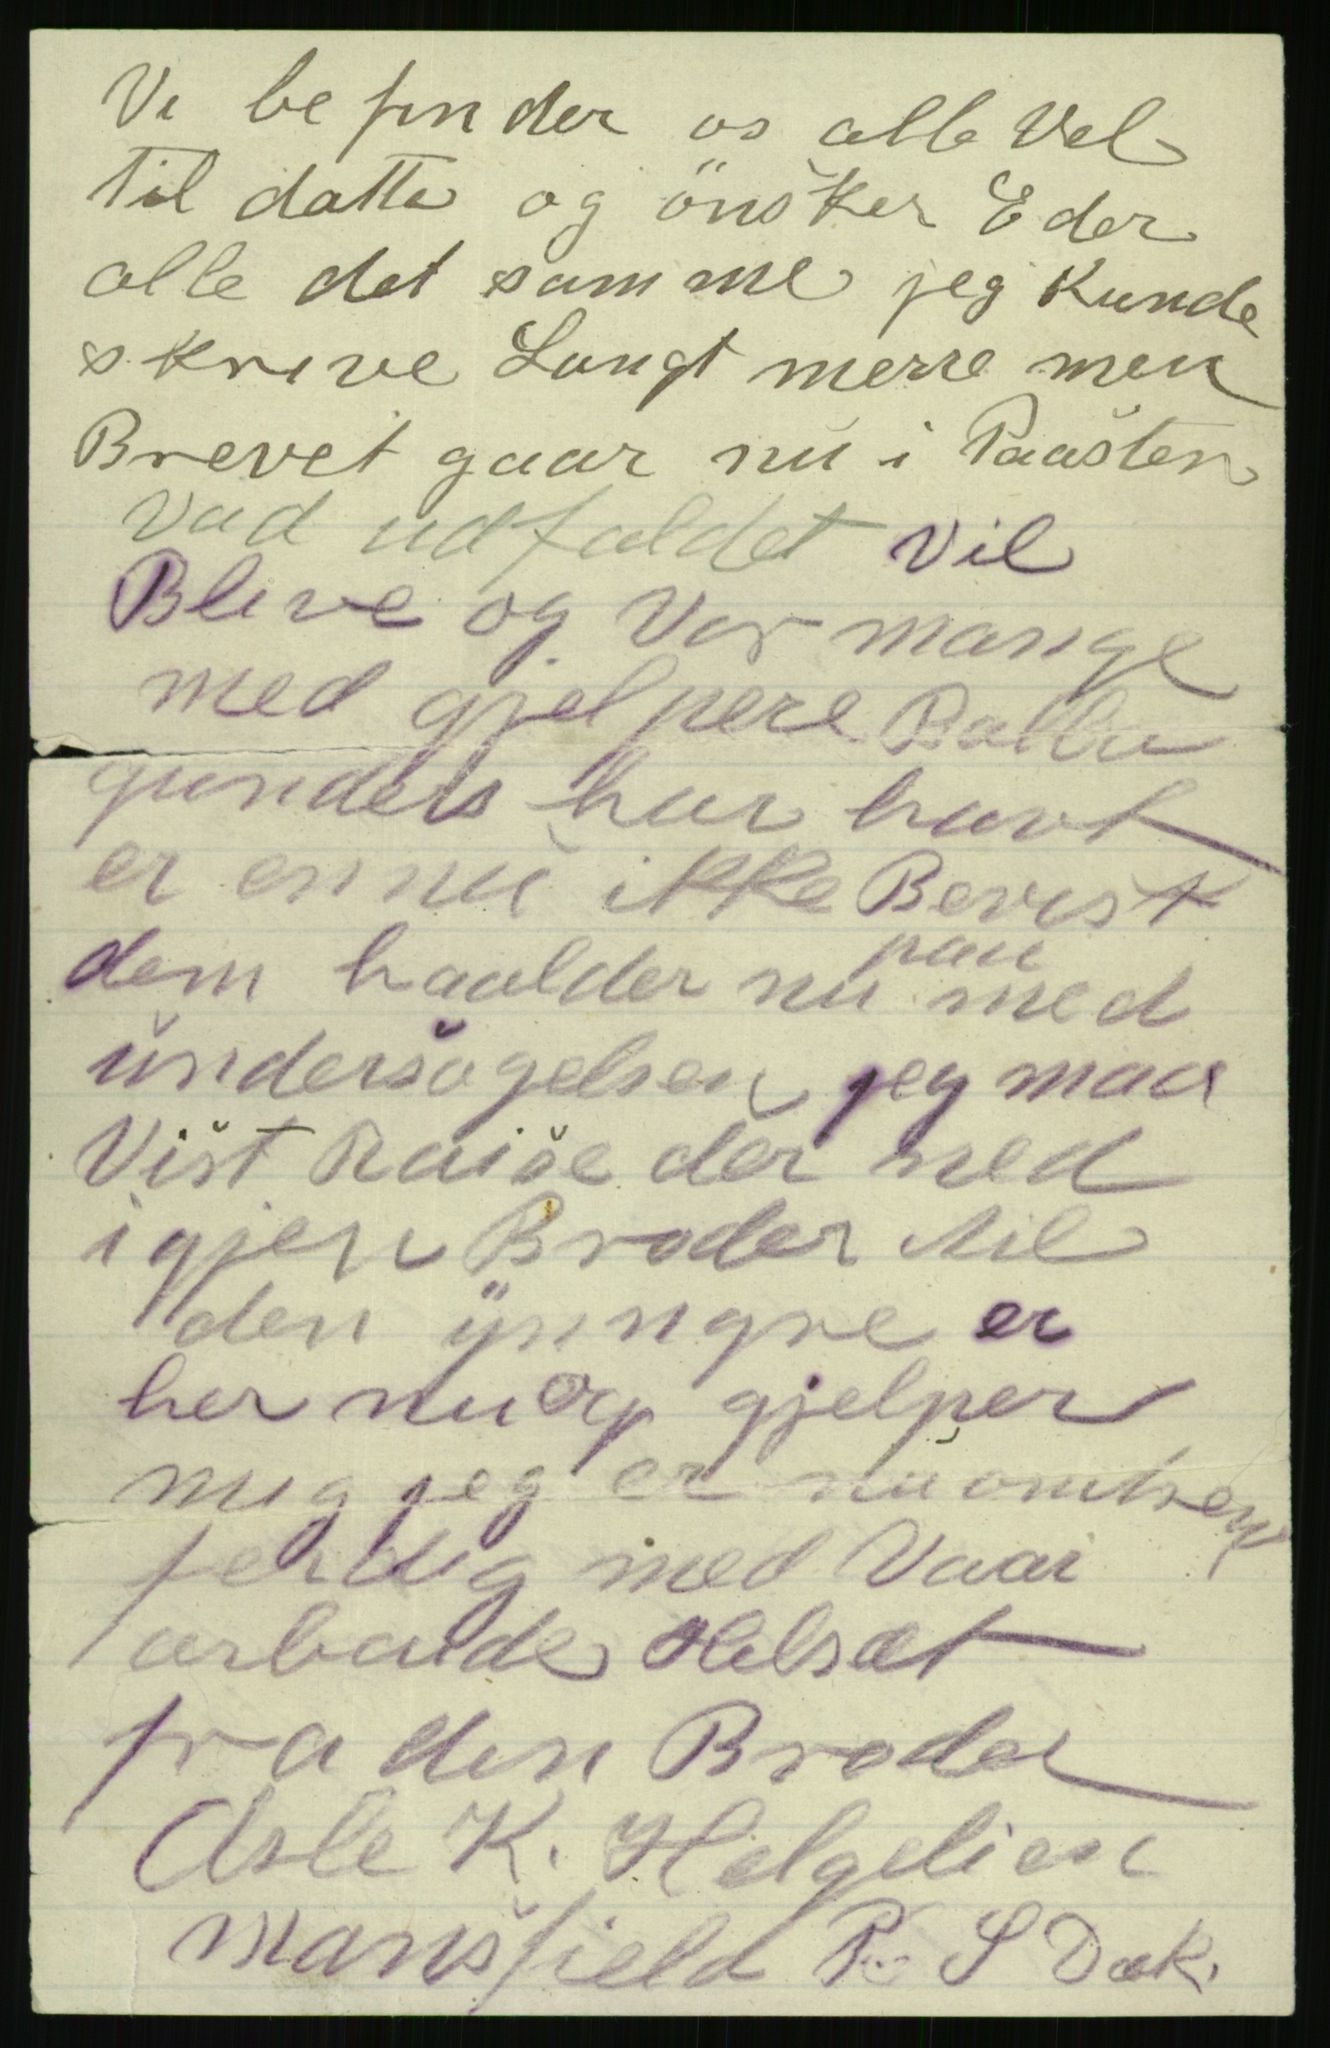 Vi be finder os alle Vel
til datto og önsker Eder
alle det samme jeg Kunde
skrive Langt merre men
Brevet gaar nu i Paasten
Vad udfaldet Vil
Blive og Vor mange
med gjelpere Balla
gundels har havt
er ennu ikke Bevist
dem haalder nu paa med
undersøgelsen jeg maa
Vist Raise der ned
igjen Broder til
den ÿnngre er
her nu og gjelper
mig jeg er nu omtren
ferdig med Vaar
arbaide Helsat
fra din Broder
Asle K. Helgelien
Mansfield P.o S Dak.